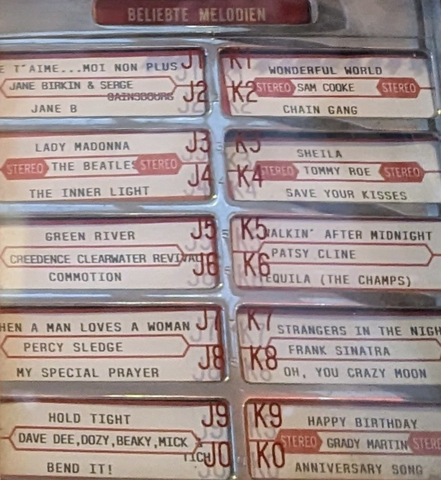 BELIEBTE MELODIEN
E T'AIME...MOI NON PLUS J1
JANE BIRKIN & SERGE
GAINSBOURG
JANE B J2
K1 WONDERFUL WORLD
STEREO SAM COOKE STEREO
K2 CHAIN GANG
LADY MADONNA J3
STEREO THE BEATLES STEREO
THE INNER LIGHT J4
K3 SHEILA
STEREO TOMMY ROE STEREO
K4 SAVE YOUR KISSES
GREEN RIVER J5
CREEDENCE CLEARWATER REVIVAL
COMMOTION J6
K5 WALKIN' AFTER MIDNIGHT
PATSY CLINE
K6 TEQUILA (THE CHAMPS)
HEN A MAN LOVES A WOMAN J7
PERCY SLEDGE
MY SPECIAL PRAYER J8
K7 STRANGERS IN THE NIGH
FRANK SINATRA
K8 OH, YOU CRAZY MOON
HOLD TIGHT J9
DAVE DEE,DOZY,BEAKY,MICK &
TICH
BEND IT! J0
K9 HAPPY BIRTHDAY
STEREO GRADY MARTIN STERE
K0 ANNIVERSARY SONG